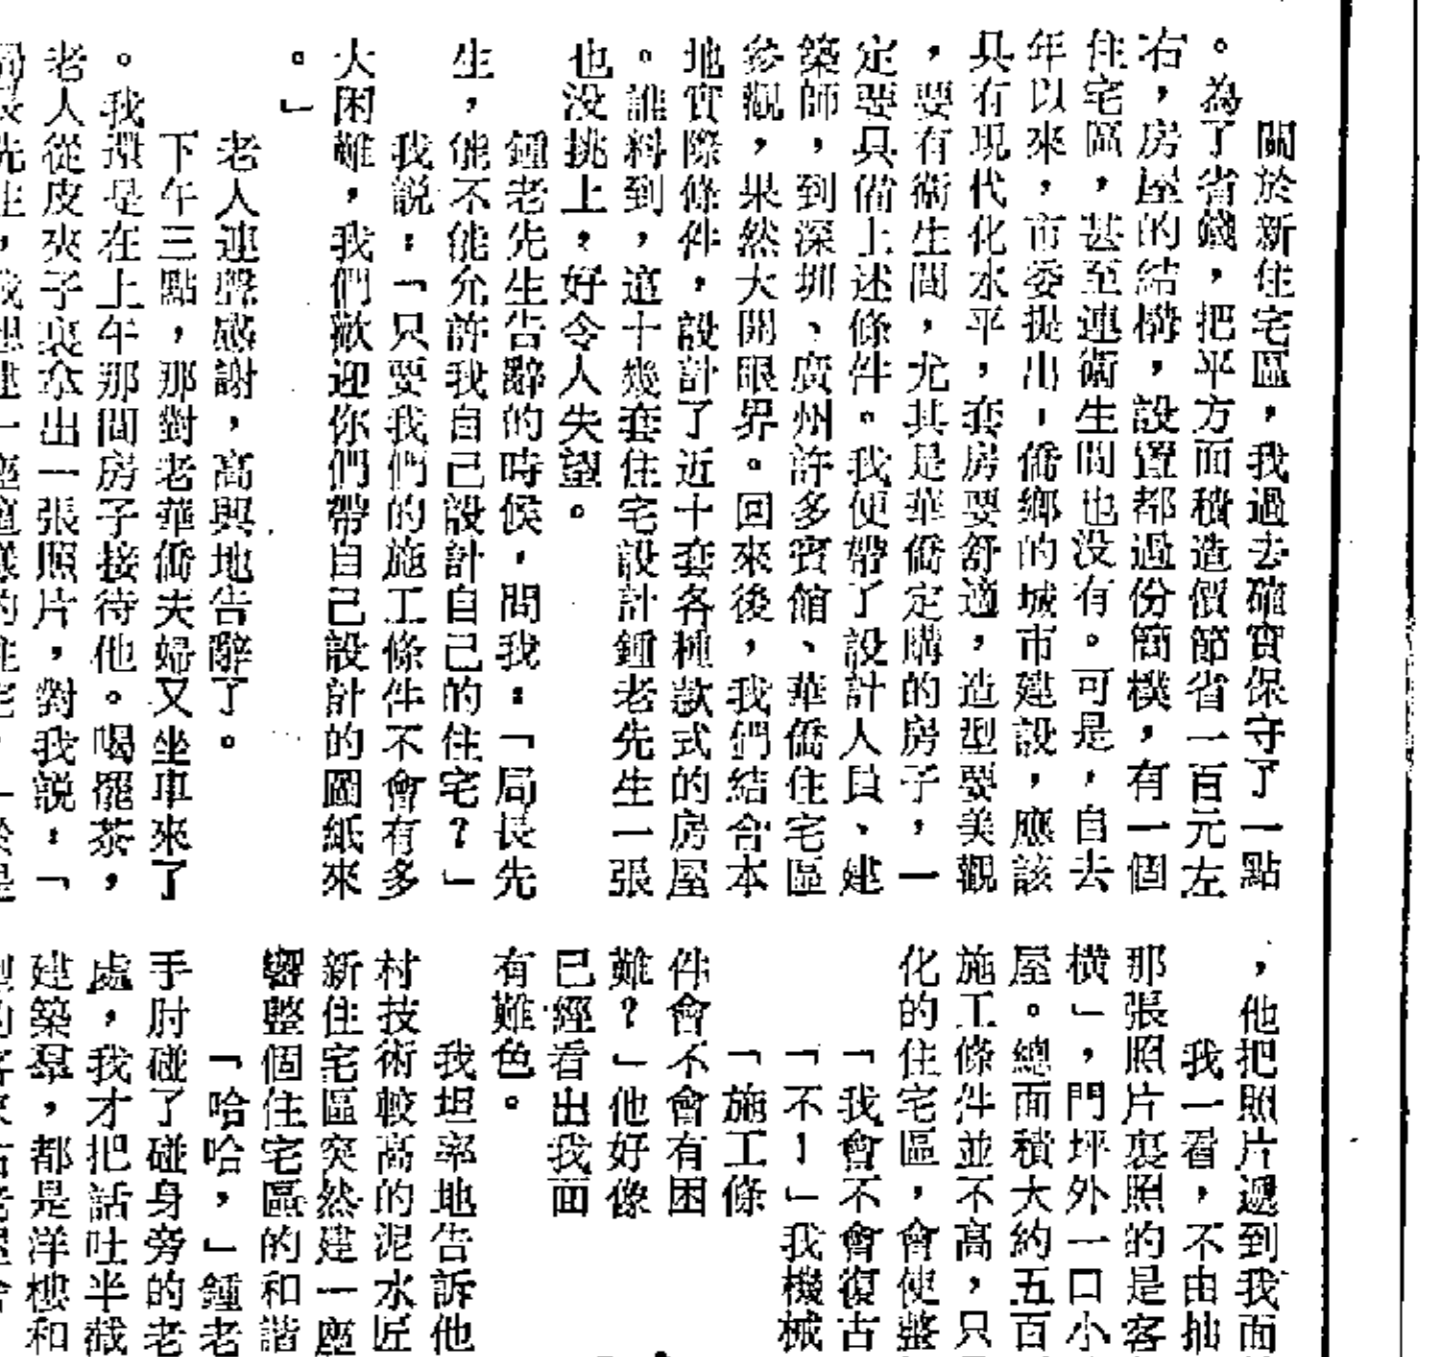 關於新住宅區，我過去確實保守了一點
。為了省錢，把平方面積造價節省一百元左
右，房屋的結構，設置都過份簡樸，有一個
住宅區，甚至連衛生間也没有。可是，自去
年以來，市委提出，僑鄉的城市建設，應該
具有現代化水平，套房要舒適，造型要美觀
，要有衛生間，尤其是華僑定購的房子，一
定要具備上述條件。我便帶了設計人員、建
築師，到深圳、廣州許多賓館、華僑住宅區
參觀，果然大開眼界。回來後，我們結合本
地實際條件，設計了近十套各種款式的房屋
。誰料到，這十幾套住宅設計鍾老先生一張
也没挑上，好令人失望。
鍾老先生告辭的時候，問我：「局長先
生，能不能允許我自己設計自己的住宅？」
我説：「只要我們的施工條件不會有多
大困難，我們歡迎你們帶自己設計的圖紙來
。」
老人連聲感謝，高興地告辭了。
下午三點，那對老華僑夫婦又坐車來了
。我還是在上午那間房子接待他。喝罷茶，
老人從皮夾子裏拿出一張照片，對我説：「
，他把照片遞到我面
我一看，不由抽
那張照片裏照的是客
橫」，門坪外一口小
屋。總面積大約五百
施工條件並不高，只
化的住宅區，會使整
「我會不會復古
「不！」我機械
「施工條
件會不會有困
難？」他好像
已經看出我面
有難色。
我坦率地告訴他
村技術較高的泥水匠
新住宅區突然建一座
響整個住宅區的和諧
「哈哈，」鍾老
手肘碰了碰身旁的老
處，我才把話吐半截
建築羣，都是洋樓和